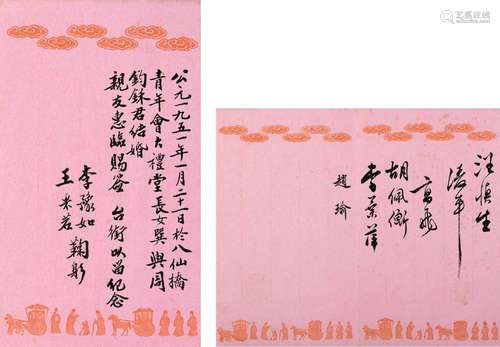 公元一九五一年一月二十一日於八仙橋
青年會大禮堂長女巽與周
鈞銖君结婚
親友惠臨賜簽 台銜以留紀念
李豫如
王米若 鞠躬
汪慎生
高飛
胡佩衡
趙瑜
艺易在线